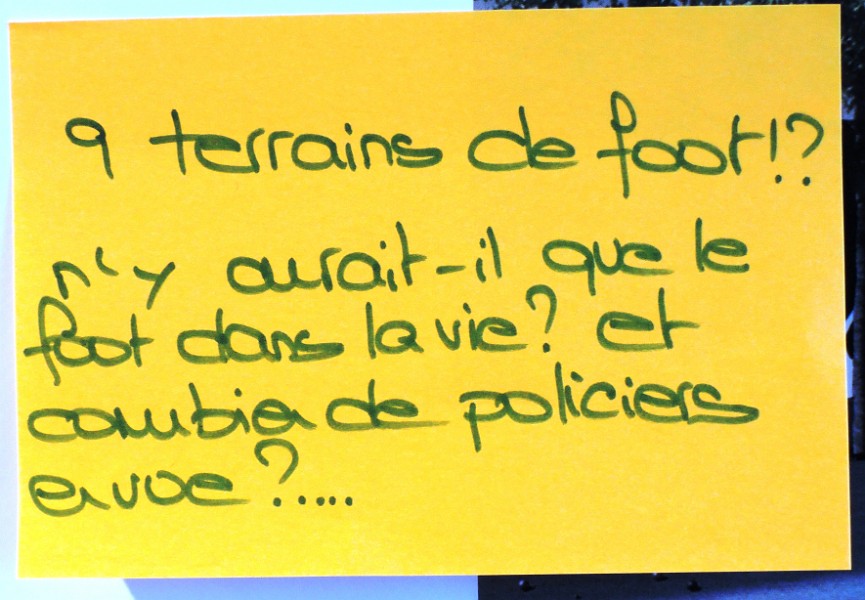 9 terrains de foot!?
n'y aurait-il que le
foot dans la vie? et
combien de policiers
en vue?.....